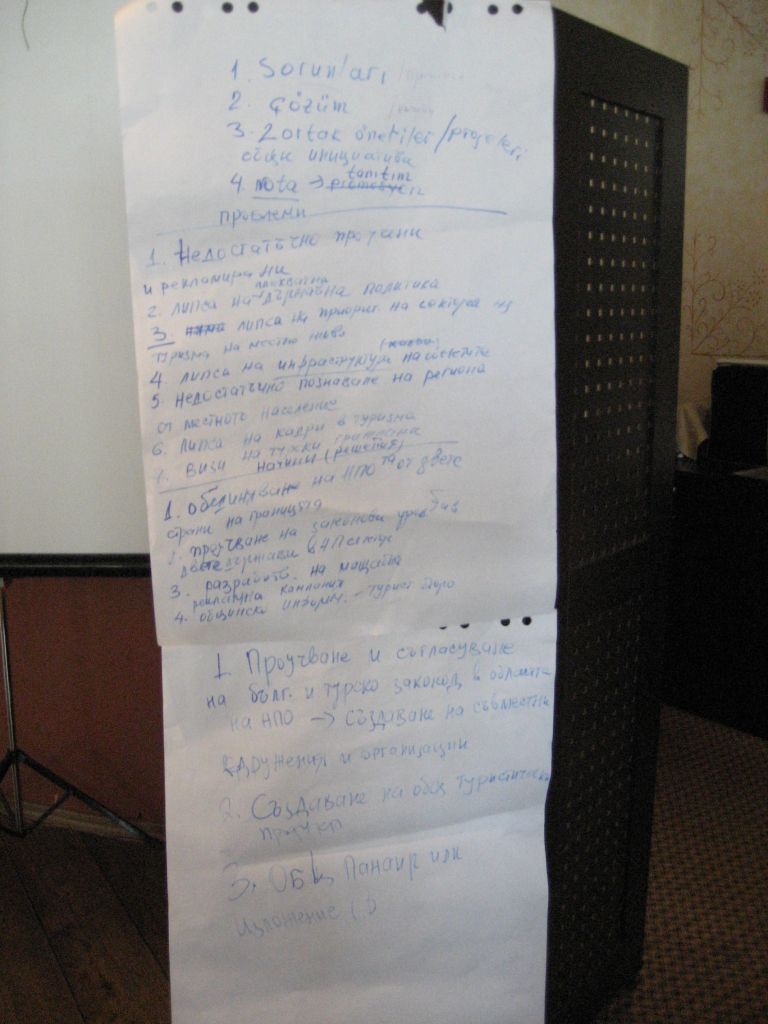 1. Sorunları
2. Çözüm
3. 2 ortak öneriler/projeleri
същи инициатива
4. nota → tanıtım
проблеми
1. Недостатъчно
и рекламирани
2. липса на държавна политика
3. липса на приорит. на сектора
туризма на местно ниво
4. липса на инфраструктура на
5. недостатъчно познаване на региона
от местното население
6. липса на кадри в туризма
7. визи на
начини (решения)
1. обединяване на НПО от двете
страни на границата
2. проучване на законови
двете държави в НПсектор
3. разработ. на мащабна
рекламна кампания
4. общински информ. - турист. бюро
1. Проучване и съгласуване
на бълг. и турско законод. в областта
на НПО → Създаване на съвместни
сдружения и организации
2. Създаване на общ туристически
3. Общ Панаир или
Изложение